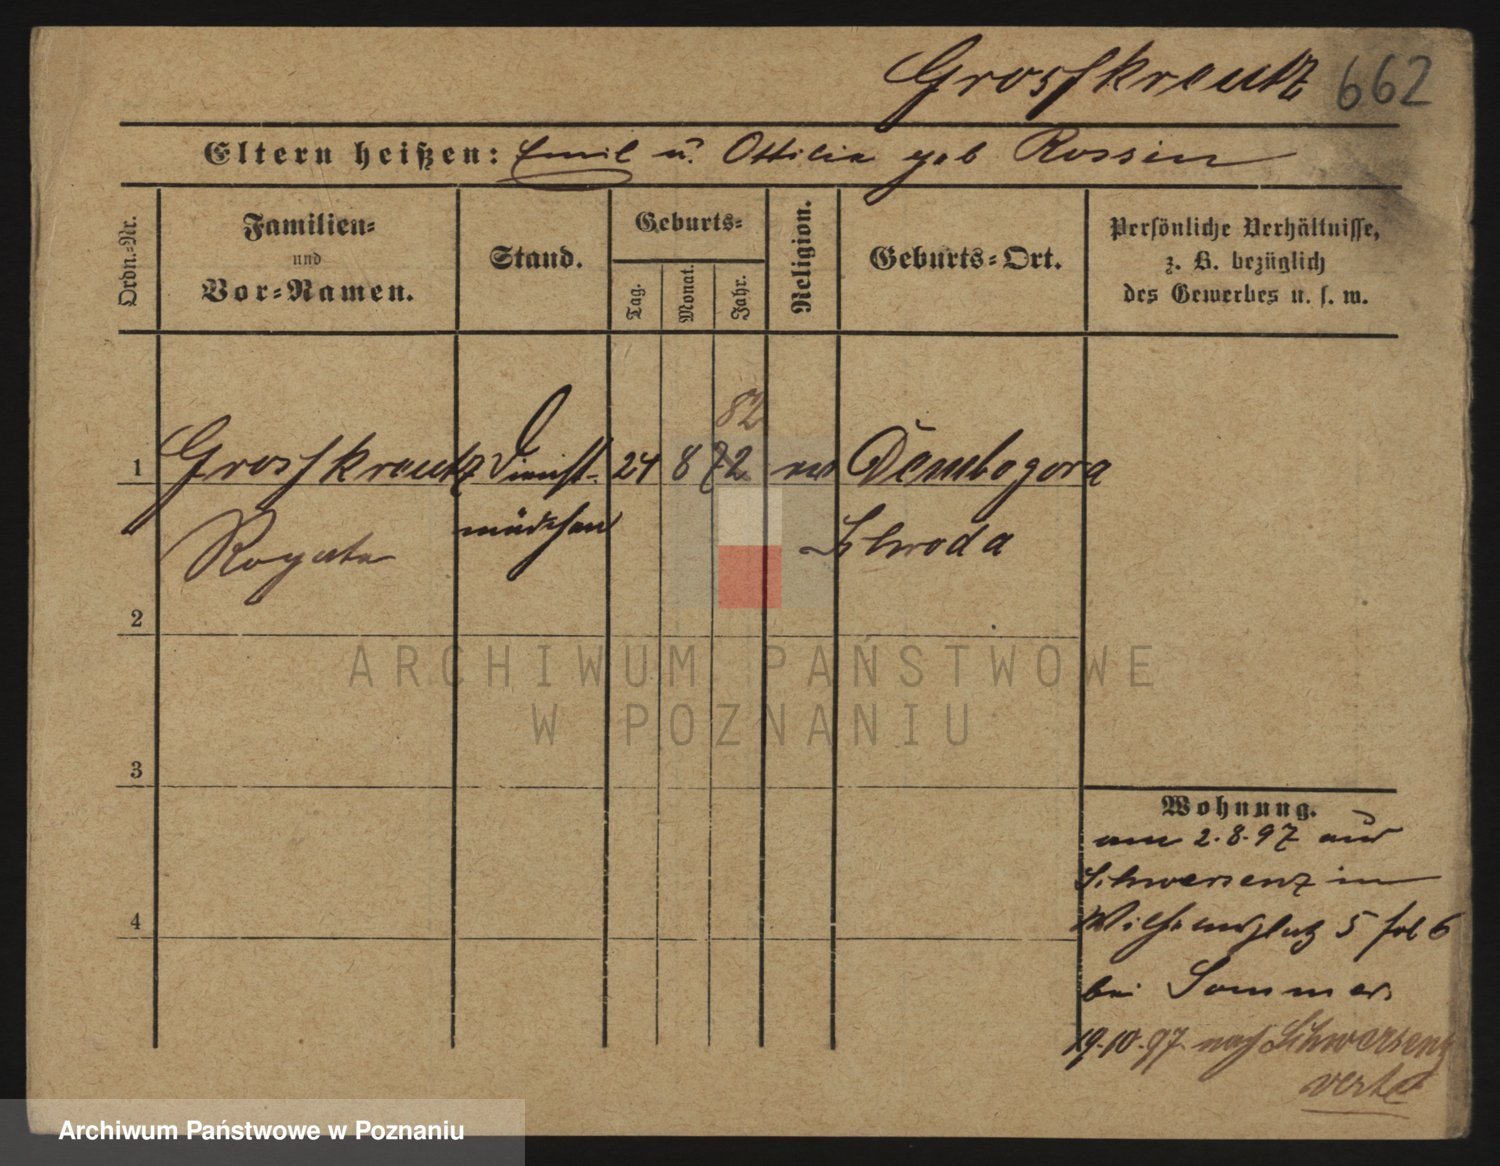 Grosskreutz 662
Eltern heißen: Emil u. Ottilie geb Rossin
Ordn.-Nr.
Familien-
und
Vor-Namen.
Stand.
Geburts-
Tag.
Monat.
Jahr.
Religion.
Geburts-Ort.
Persönliche Verhältnisse,
z. B. bezüglich
des Gewerbes u. s. w.
82
1 Grosskreutz Dienst- 24 8 72 Dembogora
mädchen Schroda
Rogate
2
3
4
Wohnung.
am 2.8.97 aus
Schwersenz in
Wilhelmsplatz 5
bei Sommer
19.10.97 nach Schwersenz
verte
ARCHIWUM PAŃSTWOWE
W POZNANIU
Archiwum Państwowe w Poznaniu